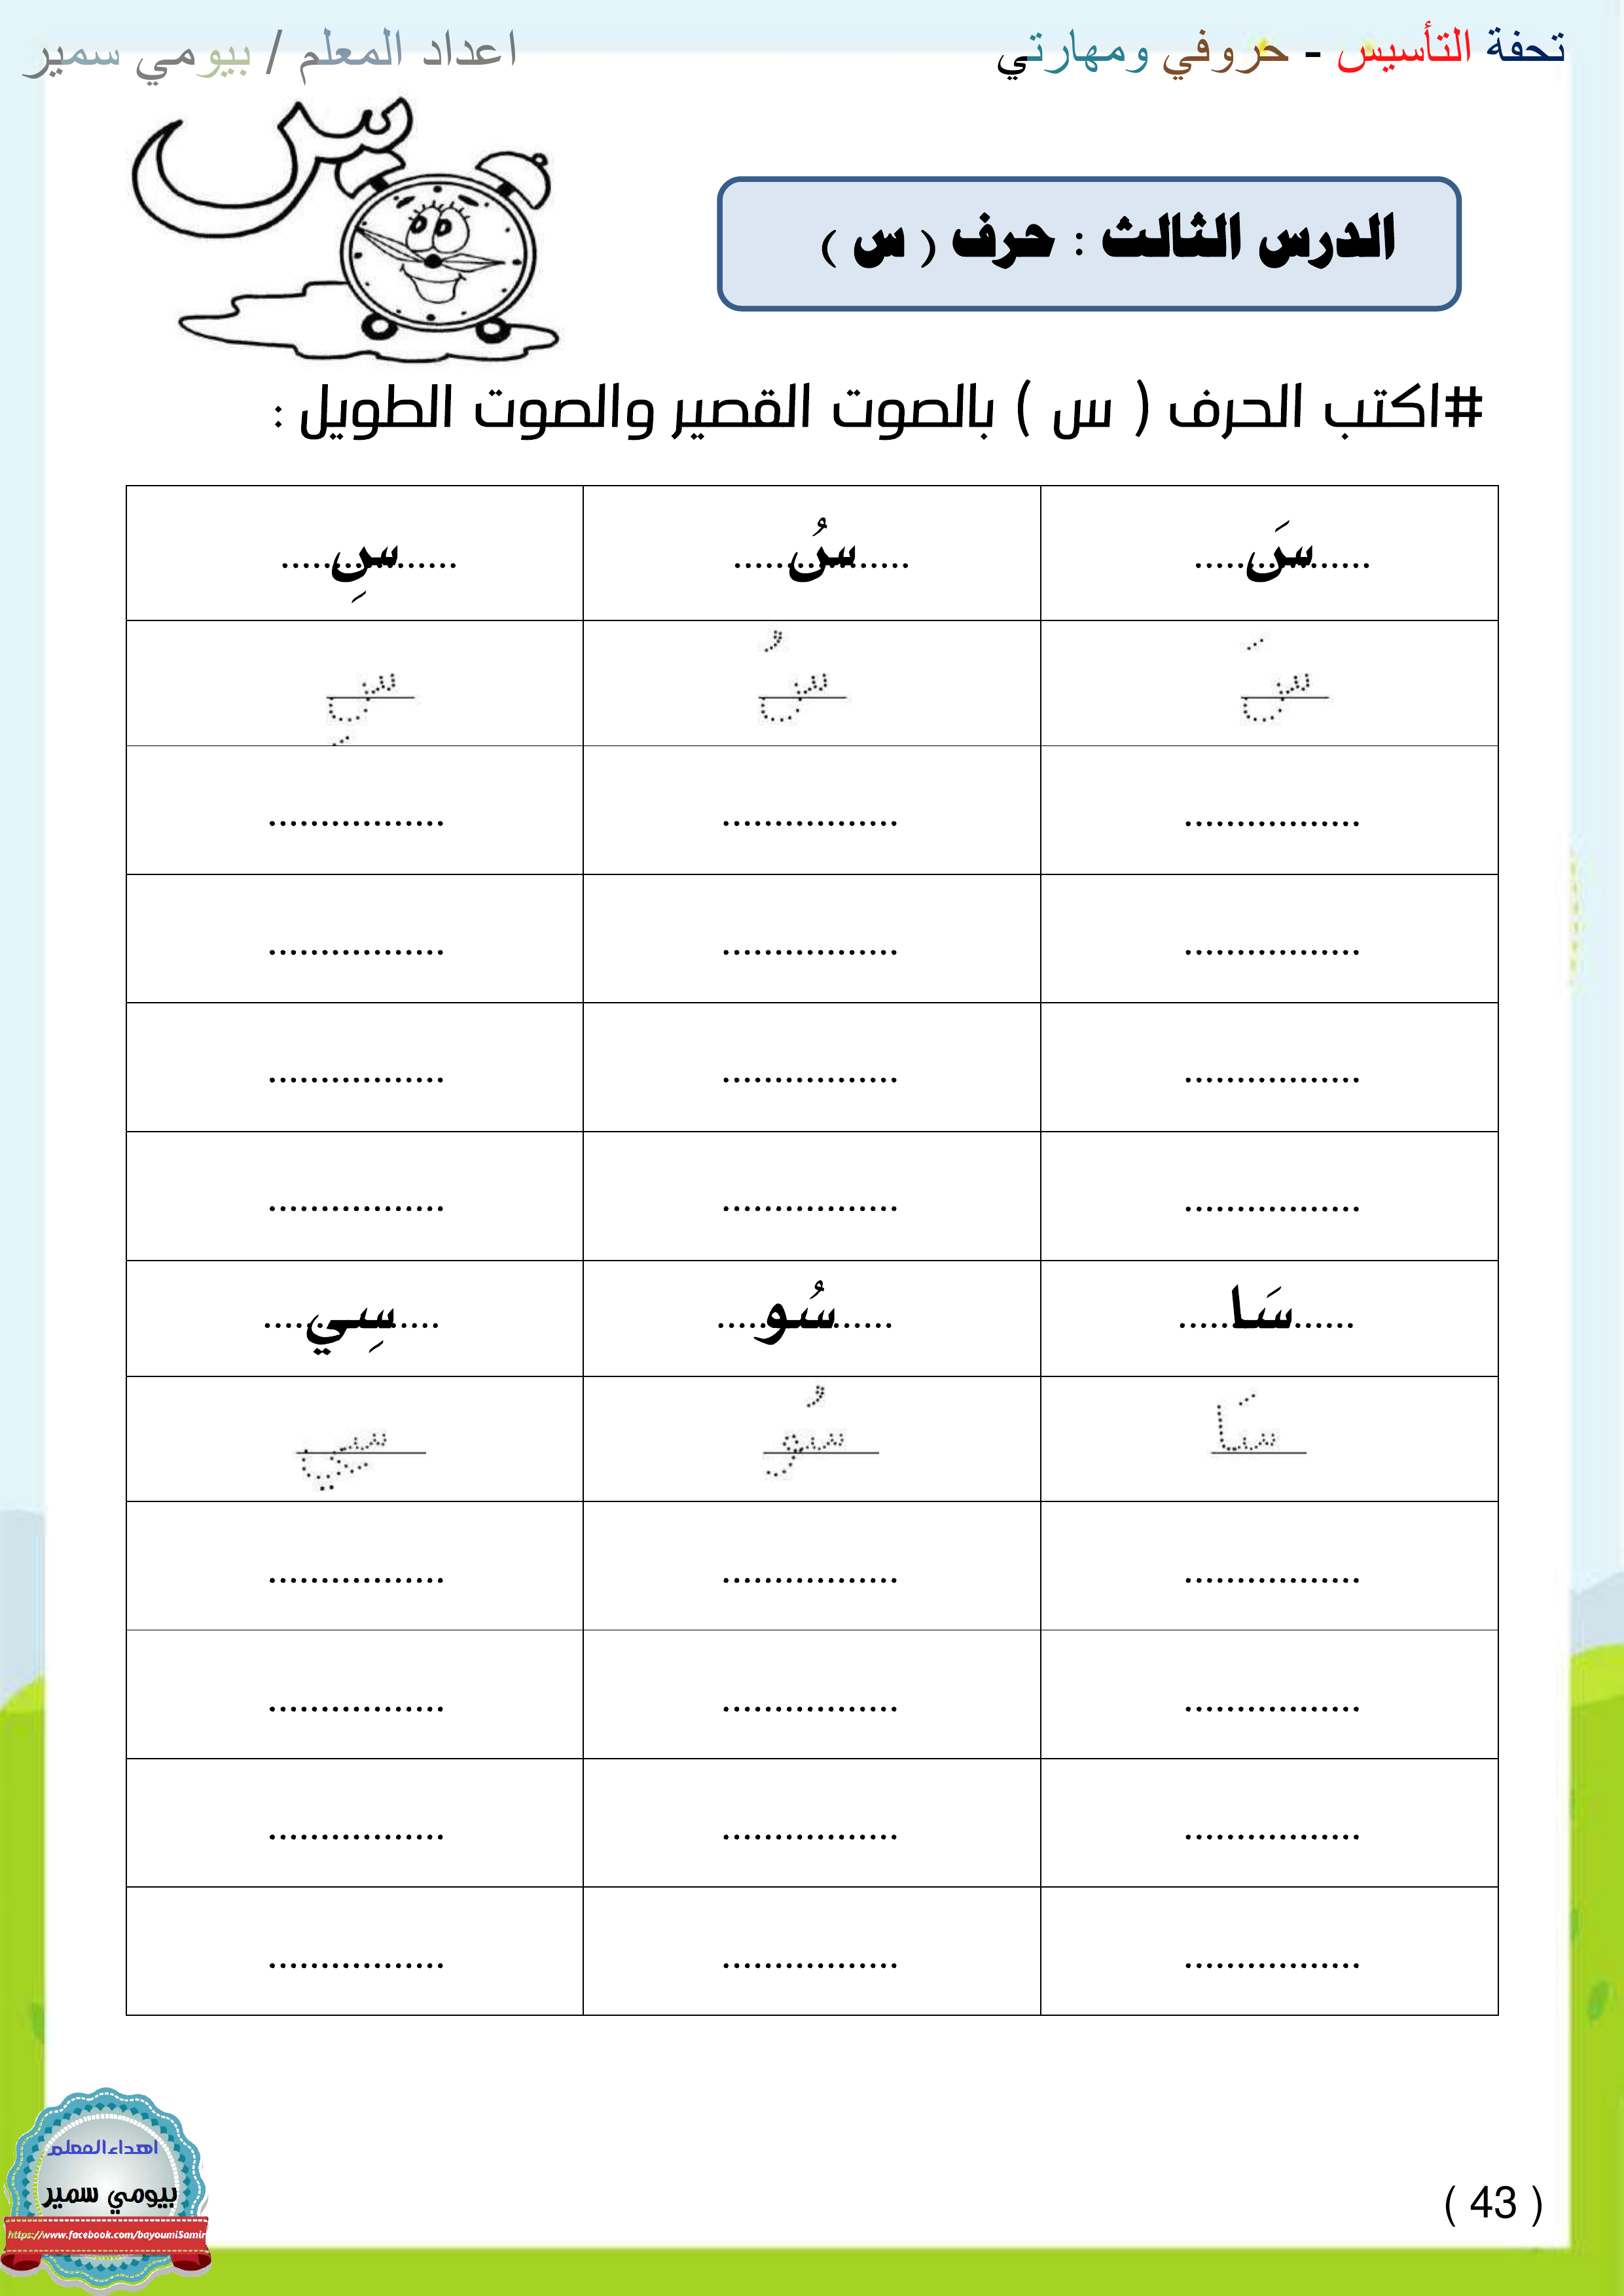 تحفة التأسيس - حروفي ومهارتي
اعداد المعلم / بيومي سمير
س
الدرس الثالث : حرف ( س )
#اكتب الحرف ( س ) بالصوت القصير والصوت الطويل :
سَ سُ سِ
سَ سُ سِ
................. ................. .................
................. ................. .................
................. ................. .................
................. ................. .................
سَا سُو سِي
سَا سُو سي
................. ................. .................
................. ................. .................
................. ................. .................
................. ................. .................
اهداء المعلم
بيومي سمير
https://www.facebook.com/bayoumiSamir
( 43 )